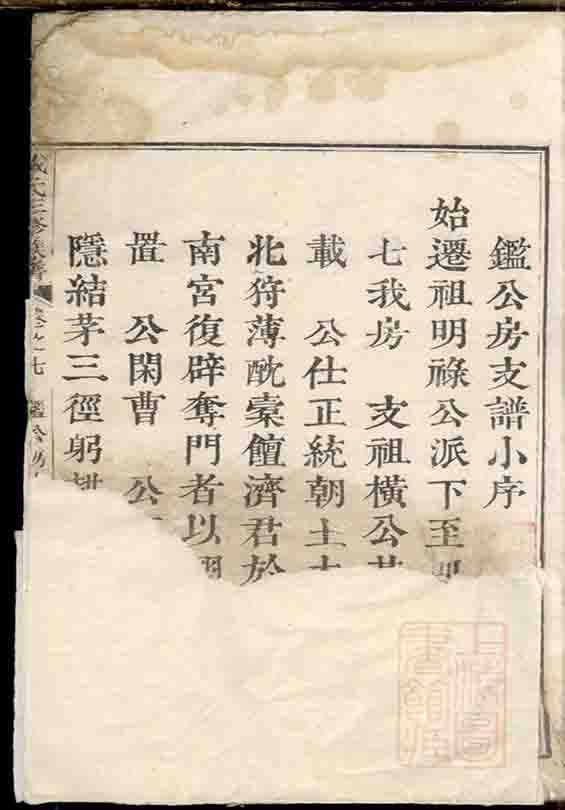 鑑公房支譜小序
始遷祖明祿公派下至
七我房　支祖橫公
載　公仕正統朝土
北狩薄酖橐饘濟君於
南宮復辟奪門者以
置　公閑曹　公
隱結茅三徑躬
氏三修族譜
卷之七　鑑公房